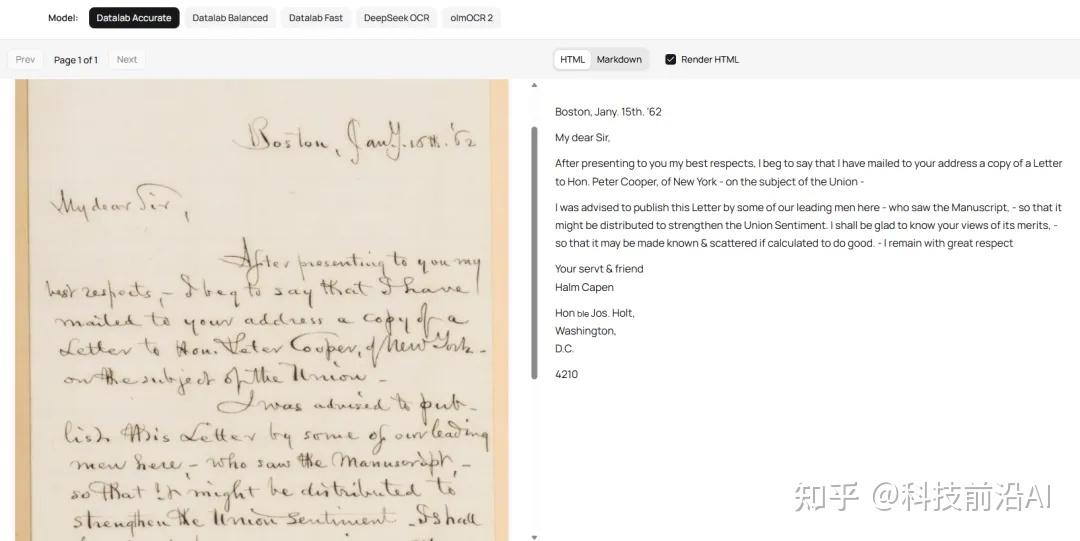 Model: Datalab Accurate Datalab Balanced Datalab Fast DeepSeek OCR olmOCR 2
Prev Page 1 of 1 Next
HTML Markdown Render HTML
Boston, Jany. 15th. '62
My dear Sir,
After presenting to you my
best respects, - I beg to say that I have
mailed to your address a copy of a
Letter to Hon. Peter Cooper, of New York -
on the subject of the Union -
I was advised to pub-
lish this Letter by some of our leading
men here, - who saw the Manuscript, -
so that it might be distributed to
strengthen the Union Sentiment. I shall
Boston, Jany. 15th. '62
My dear Sir,
After presenting to you my best respects, I beg to say that I have mailed to your address a copy of a Letter
to Hon. Peter Cooper, of New York - on the subject of the Union -
I was advised to publish this Letter by some of our leading men here - who saw the Manuscript, - so that it
might be distributed to strengthen the Union Sentiment. I shall be glad to know your views of its merits, -
so that it may be made known & scattered if calculated to do good. - I remain with great respect
Your servt & friend
Halm Capen
Hon ble Jos. Holt,
Washington,
D.C.
4210
知乎 @科技前沿AI